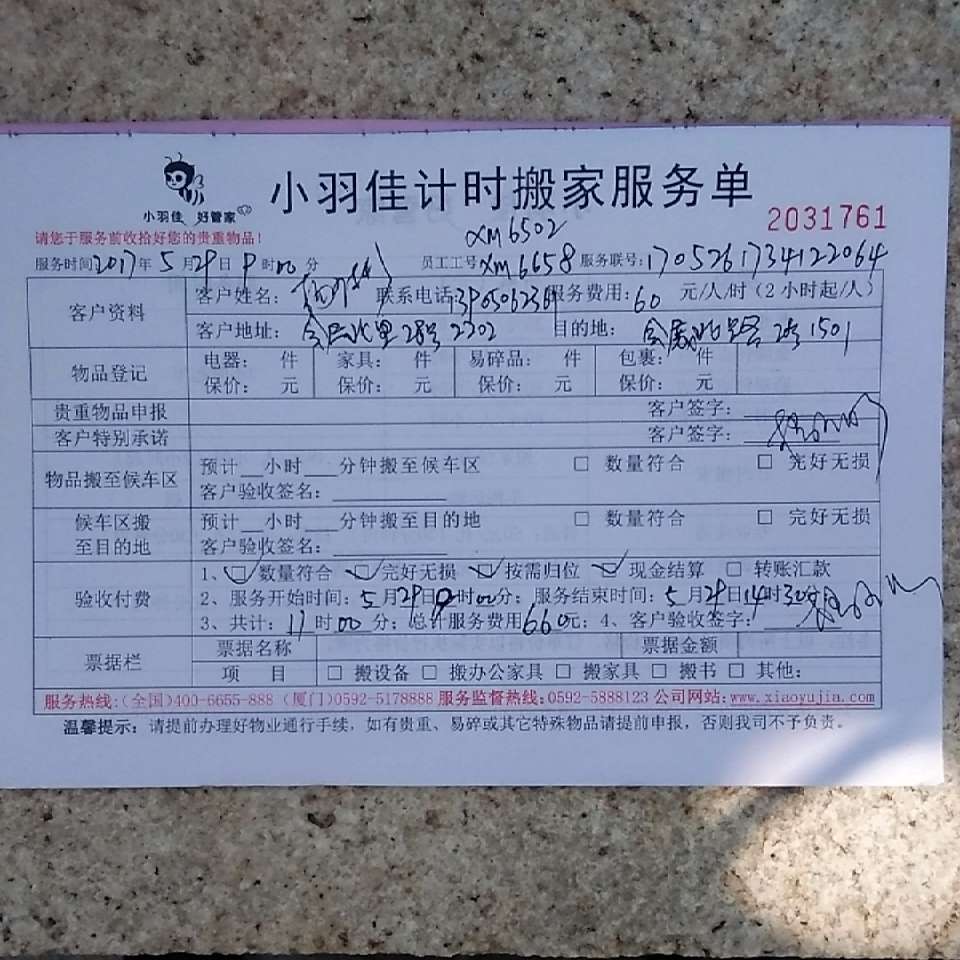 小羽佳 好管家
小羽佳计时搬家服务单
2031761
XM6502
请您于服务前收拾好您的贵重物品！
服务时间2017年5月29日9时00分 员工工号XM6658 服务联号:1705261734122064
客户资料 客户姓名： 联系电话: 服务费用:60 元/人/时(2小时起/人)
客户地址： 28号2302 目的地： 1501
物品登记 电器： 件 家具： 件 易碎品： 件 包裹： 件
保价： 元 保价： 元 保价： 元 保价： 元
贵重物品申报 客户签字：
客户特别承诺 客户签字：
物品搬至候车区 预计 小时 分钟搬至候车区 □ 数量符合 □ 完好无损
客户验收签名：
候车区搬至目的地 预计 小时 分钟搬至目的地 □ 数量符合 □ 完好无损
客户验收签名：
验收付费 1、☑数量符合 ☑完好无损 ☑按需归位 ☑现金结算 □ 转账汇款
2、服务开始时间：5月29日9时00分；服务结束时间：5月29日14时30分
3、共计：11时00分；总计服务费用660元；4、客户验收签字：
票据栏 票据名称 票据金额
项 目 □ 搬设备 □ 搬办公家具 □ 搬家具 □ 搬书 □ 其他：
服务热线：(全国)400-6655-888 (厦门)0592-5178888 服务监督热线：0592-5888123 公司网站：www.xiaoyujia.com
温馨提示：请提前办理好物业通行手续，如有贵重、易碎或其它特殊物品请提前申报，否则我司不予负责。